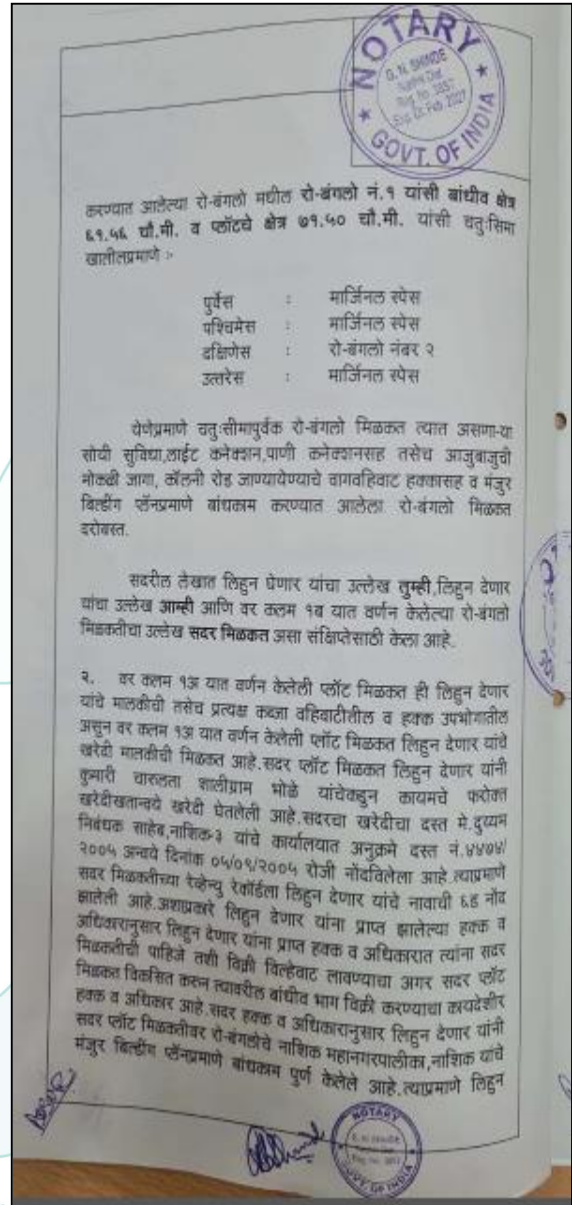 NOTARY
G. N. SHINDE
Nashik Dist
GOVT. OF INDIA
करण्यात आलेल्या रो-बंगलो मधील रो-बंगलो नं.१ यांसी बांधीव क्षेत्र
६१.५६ चौ.मी. व प्लॉटचे क्षेत्र ७१.५० चौ.मी. यांसी चतु:सिमा
खालीलप्रमाणे :-
पुर्वेस : मार्जिनल स्पेस
पश्चिमेस : मार्जिनल स्पेस
दक्षिणेस : रो-बंगलो नंबर २
उत्तरेस : मार्जिनल स्पेस
येणेप्रमाणे चतु:सीमापुर्वक रो-बंगलो मिळकत त्यात असणा-या
सोयी सुविधा,लाईट कनेक्शन,पाणी कनेक्शनसह तसेच आजुबाजुची
मोकळी जागा, कॉलनी रोड जाण्यायेण्याचे वागवहिवाट हक्कासह व मंजुर
बिल्डींग प्लॅनप्रमाणे बांधकाम करण्यात आलेला रो-बंगलो मिळकत
दरोबस्त.
सदरील लेखात लिहुन घेणार यांचा उल्लेख तुम्ही,लिहुन देणार
यांचा उल्लेख आम्ही आणि वर कलम १ब यात वर्णन केलेल्या रो-बंगलो
मिळकतीचा उल्लेख सदर मिळकत असा संक्षिप्तेसाठी केला आहे.
२. वर कलम १अ यात वर्णन केलेली प्लॉट मिळकत ही लिहुन देणार
यांचे मालकीची तसेच प्रत्यक्ष कब्जा वहिवाटीतील व हक्क उपभोगातील
असुन वर कलम १अ यात वर्णन केलेली प्लॉट मिळकत लिहुन देणार यांचे
खरेदी मालकीची मिळकत आहे.सदर प्लॉट मिळकत लिहुन देणार यांनी
कुमारी चारुलता शालीग्राम भोळे यांचेकडुन कायमचे फरोक्त
खरेदीखतान्वये खरेदी घेतलेली आहे.सदरचा खरेदीचा दस्त मे.दुय्यम
निबंधक साहेब,नाशिक-३ यांचे कार्यालयात अनुक्रमे दस्त नं.४४७४/
२००५ अन्वये दिनांक ०५/०९/२००५ रोजी नोंदविलेला आहे.त्याप्रमाणे
सदर मिळकतीच्या रेव्हेन्यु रेकॉर्डला लिहुन देणार यांचे नावाची ६ड नोंद
झालेली आहे.अशाप्रकारे लिहुन देणार यांना प्राप्त झालेल्या हक्क व
अधिकारानुसार लिहुन देणार यांना प्राप्त हक्क व अधिकारात त्यांना सदर
मिळकतीची पाहिजे तशी विक्री विल्हेवाट लावण्याचा अगर सदर प्लॉट
मिळकत विकसित करुन त्यावरील बांधीव भाग विक्री करण्याचा कायदेशीर
हक्क व अधिकार आहे.सदर हक्क व अधिकारानुसार लिहुन देणार यांनी
सदर प्लॉट मिळकतीवर रो-बंगलोचे नाशिक महानगरपालीका,नाशिक यांचे
मंजुर बिल्डींग प्लॅनप्रमाणे बांधकाम पुर्ण केलेले आहे.त्याप्रमाणे लिहुन
NOTARY
GOVT. OF INDIA